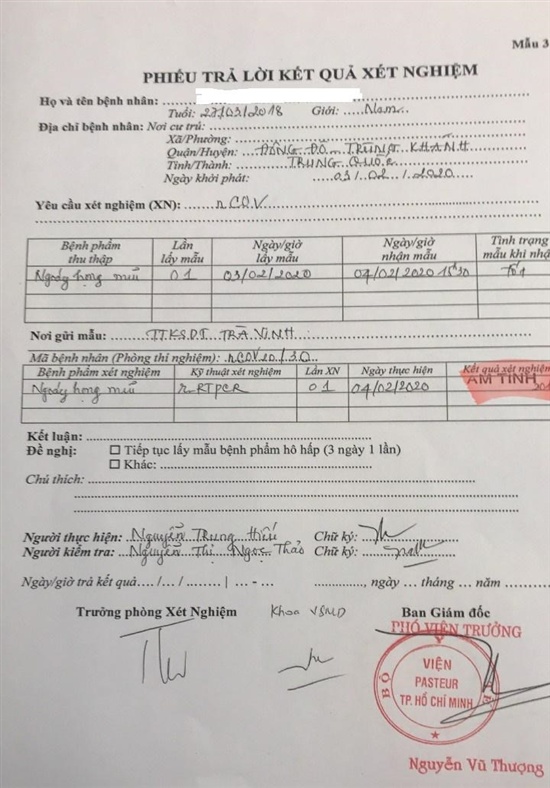 Mẫu 3
PHIẾU TRẢ LỜI KẾT QUẢ XÉT NGHIỆM
Họ và tên bệnh nhân:
Tuổi: 27/03/2018 Giới: Nam
Địa chỉ bệnh nhân: Nơi cư trú:
Xã/Phường:
Quận/Huyện: ĐÔNG ĐÔ TRÙNG KHÁNH
Tỉnh/Thành: TRUNG QUỐC
Ngày khởi phát: 03/02/2020
Yêu cầu xét nghiệm (XN): nCOV
Bệnh phẩm thu thập Lần lấy mẫu Ngày/giờ lấy mẫu Ngày/giờ nhận mẫu Tình trạng mẫu khi nhậ
Ngoáy họng mũi 01 03/02/2020 04/02/2020 15h30 Tốt
Nơi gửi mẫu: TTKSDT TRÀ VINH
Mã bệnh nhân (Phòng thí nghiệm): nCOV20/30
Bệnh phẩm xét nghiệm Kỹ thuật xét nghiệm Lần XN Ngày thực hiện Kết quả xét nghiệm
Ngoáy họng mũi rRTPCR 01 04/02/2020 ÂM TÍNH
Kết luận:
Đề nghị: ☐ Tiếp tục lấy mẫu bệnh phẩm hô hấp (3 ngày 1 lần)
☐ Khác:
Chú thích:
Người thực hiện: Nguyễn Trung Hiếu Chữ ký:
Người kiểm tra: Nguyễn Thị Ngọc Thảo Chữ ký:
Ngày/giờ trả kết quả..../..../........|....-.... ............, ngày ... tháng ... năm ..........
Trưởng phòng Xét Nghiệm Khoa VSMD Ban Giám đốc
PHÓ VIỆN TRƯỞNG
BỘ Y TẾ
VIỆN
PASTEUR
TP. HỒ CHÍ MINH
Nguyễn Vũ Thượng